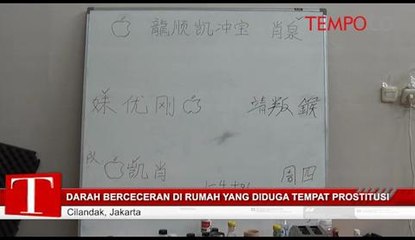 TEMPO
龍顺凯冲宝 肖泉
妹优刚
凯肖 周四
T DARAH BERCECERAN DI RUMAH YANG DIDUGA TEMPAT PROSTITUSI
Cilandak, Jakarta